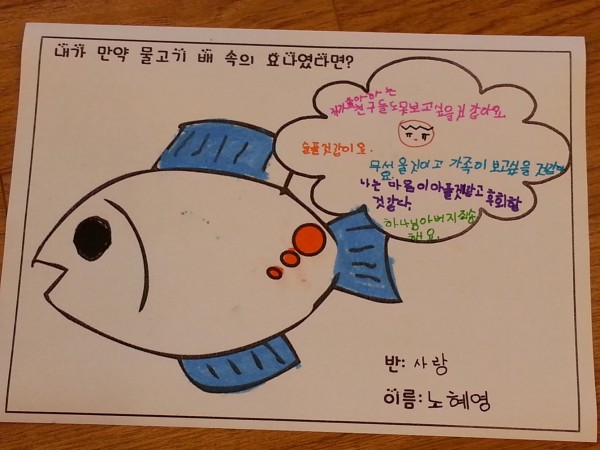 내가 만약 물고기 배 속의 요나였다면?
제가 요나라면
친구들도 못보고 싶을 것 같아요
슬플 것 같아요.
무서울 것이고 가족이 보고싶을 것 같아
요.
나는 마음이 아플것 같고 후회할
것 같다.
하나님아버지 죄송
해요.
반: 사랑
이름: 노혜영